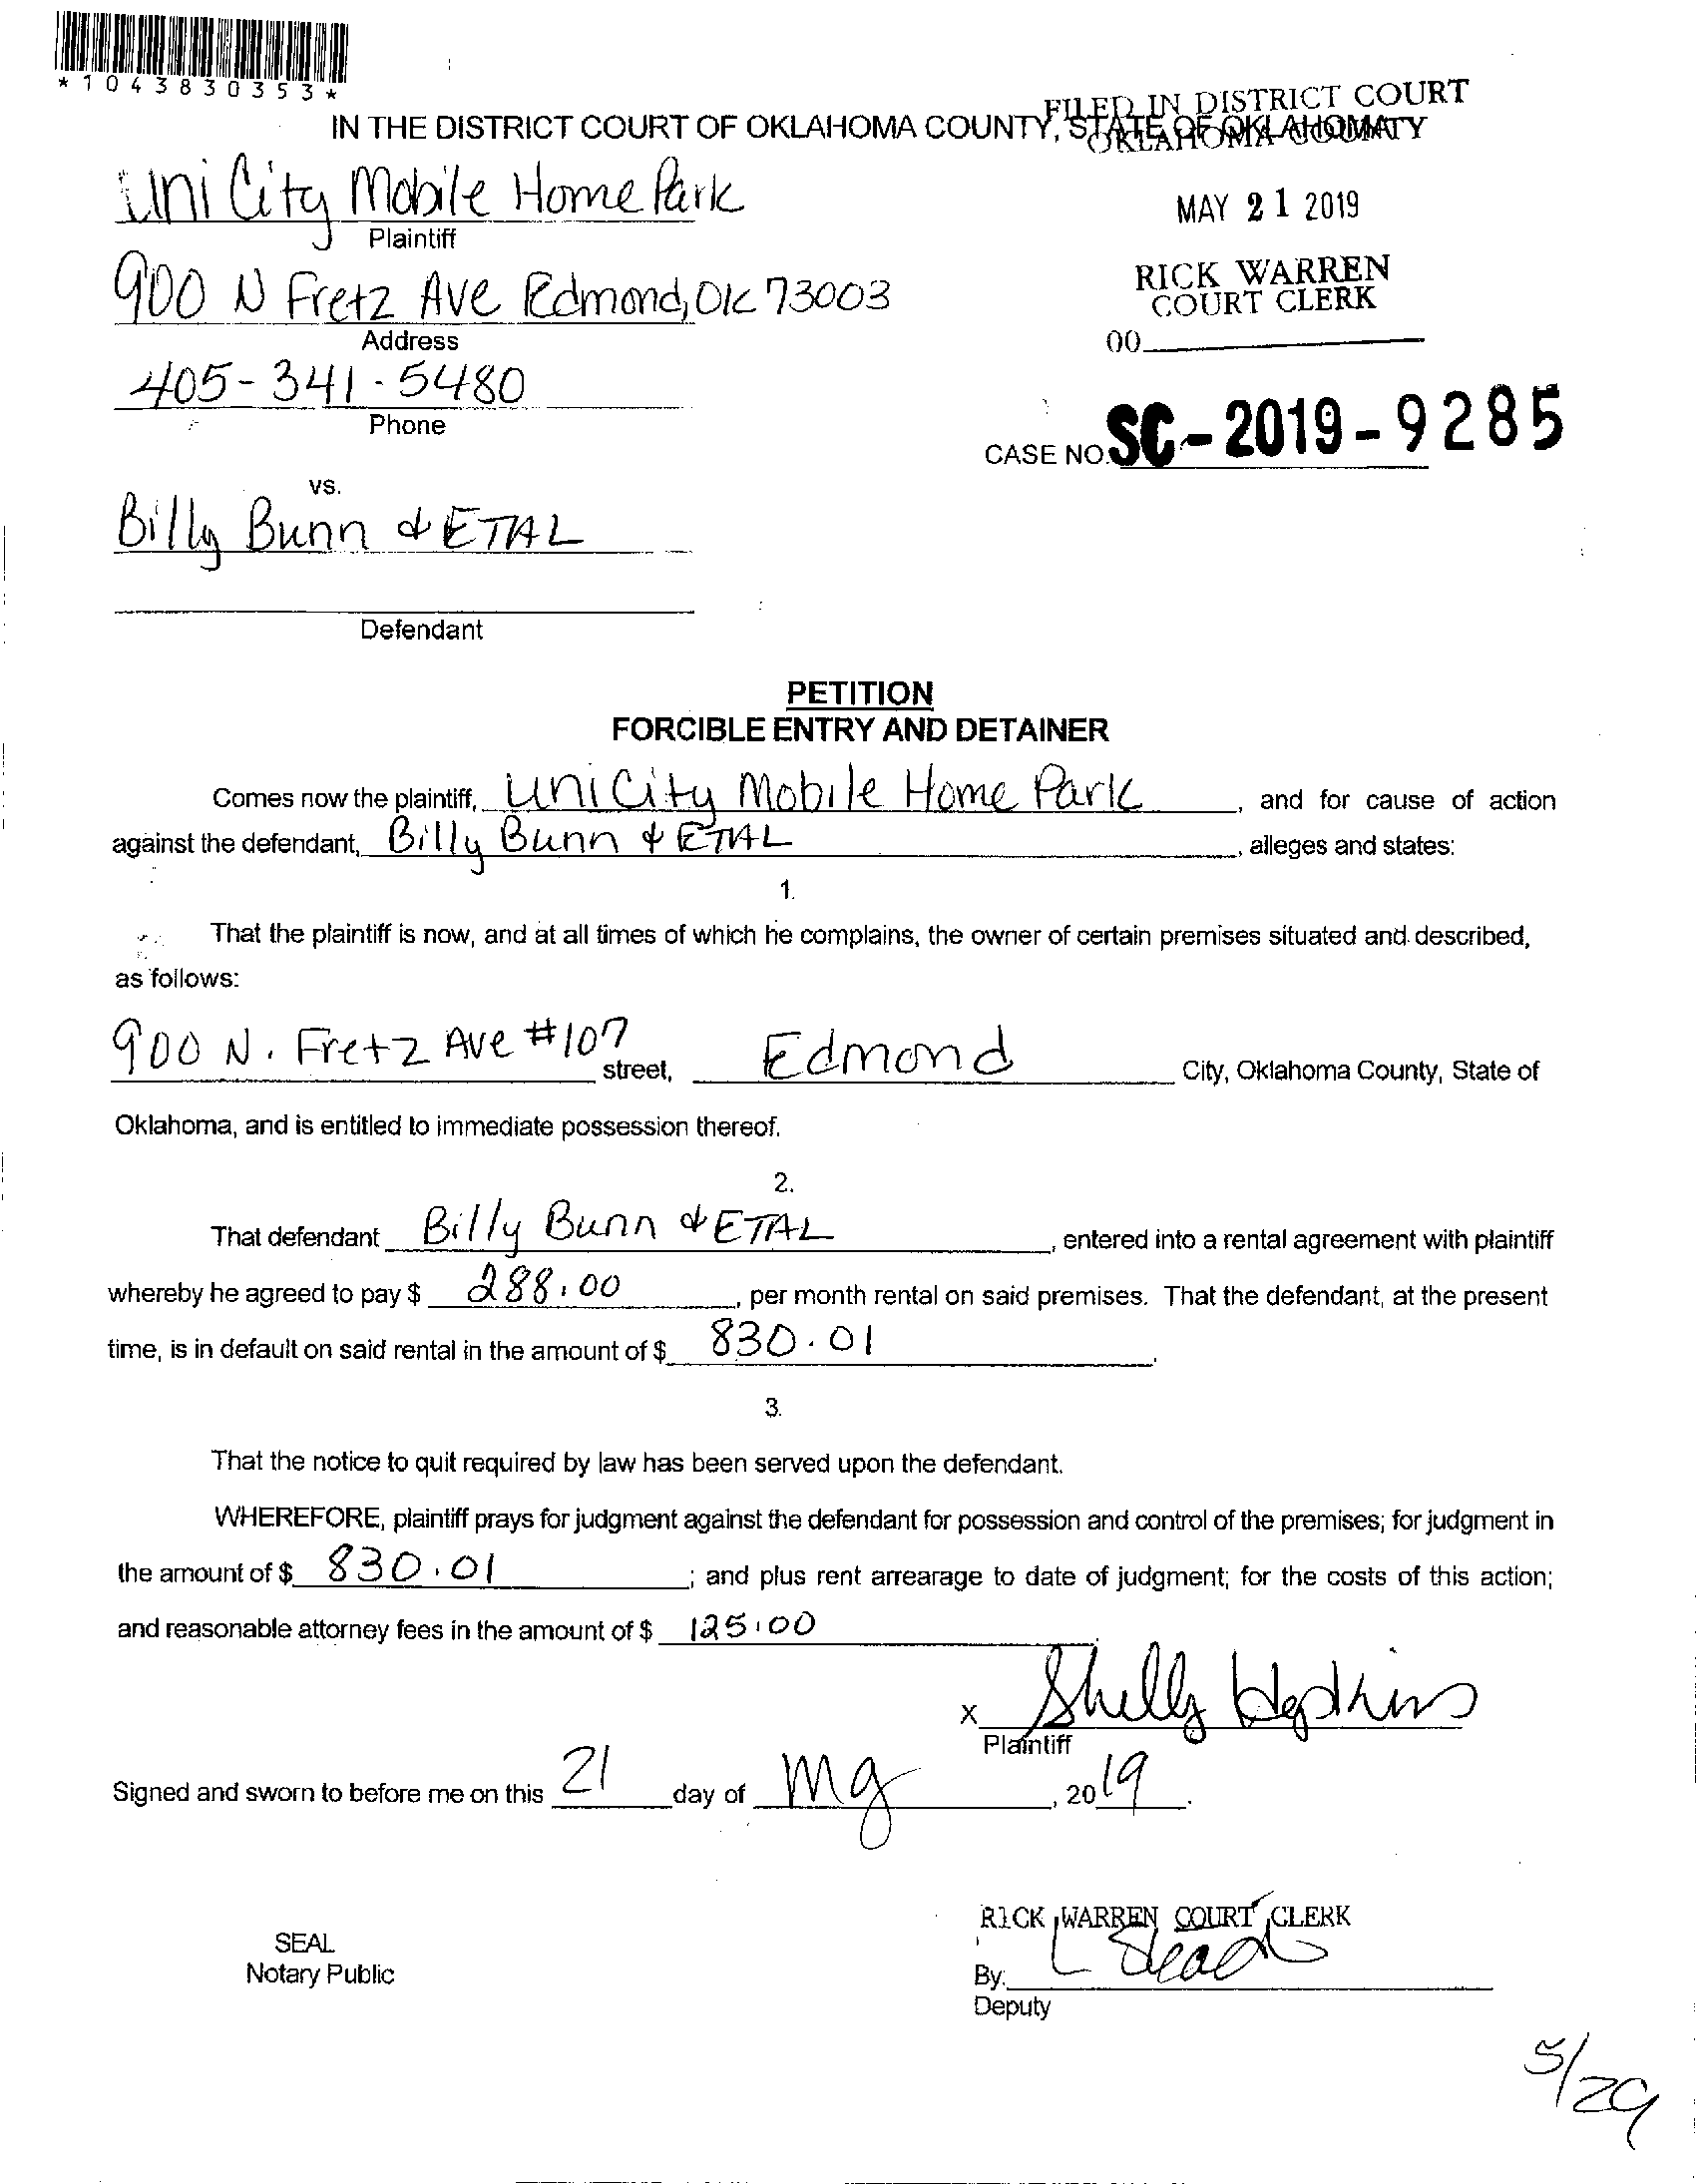 *1043830353*
FILED IN DISTRICT COURT
OKLAHOMA COUNTY
IN THE DISTRICT COURT OF OKLAHOMA COUNTY, STATE OF OKLAHOMA
Uni City Mobile Home Park
Plaintiff
MAY 21 2019
900 N Fretz Ave Edmond, OK 73003
Address
RICK WARREN
COURT CLERK
00
405-341-5480
Phone
CASE NO. SC-2019-9285
vs.
Billy Bunn & ETAL
Defendant
PETITION
FORCIBLE ENTRY AND DETAINER
Comes now the plaintiff, Uni City Mobile Home Park, and for cause of action
against the defendant, Billy Bunn & ETAL, alleges and states:
1.
That the plaintiff is now, and at all times of which he complains, the owner of certain premises situated and described,
as follows:
900 N. Fretz Ave #107 street, Edmond City, Oklahoma County, State of
Oklahoma, and is entitled to immediate possession thereof.
2.
That defendant Billy Bunn & ETAL, entered into a rental agreement with plaintiff
whereby he agreed to pay $ 288.00, per month rental on said premises. That the defendant, at the present
time, is in default on said rental in the amount of $ 830.01.
3.
That the notice to quit required by law has been served upon the defendant.
WHEREFORE, plaintiff prays for judgment against the defendant for possession and control of the premises; for judgment in
the amount of $ 830.01; and plus rent arrearage to date of judgment; for the costs of this action;
and reasonable attorney fees in the amount of $ 125.00.
x Shelly Hopkins
Plaintiff
Signed and sworn to before me on this 21 day of May, 2019.
SEAL
Notary Public
RICK WARREN COURT CLERK
By:
Deputy
5/29